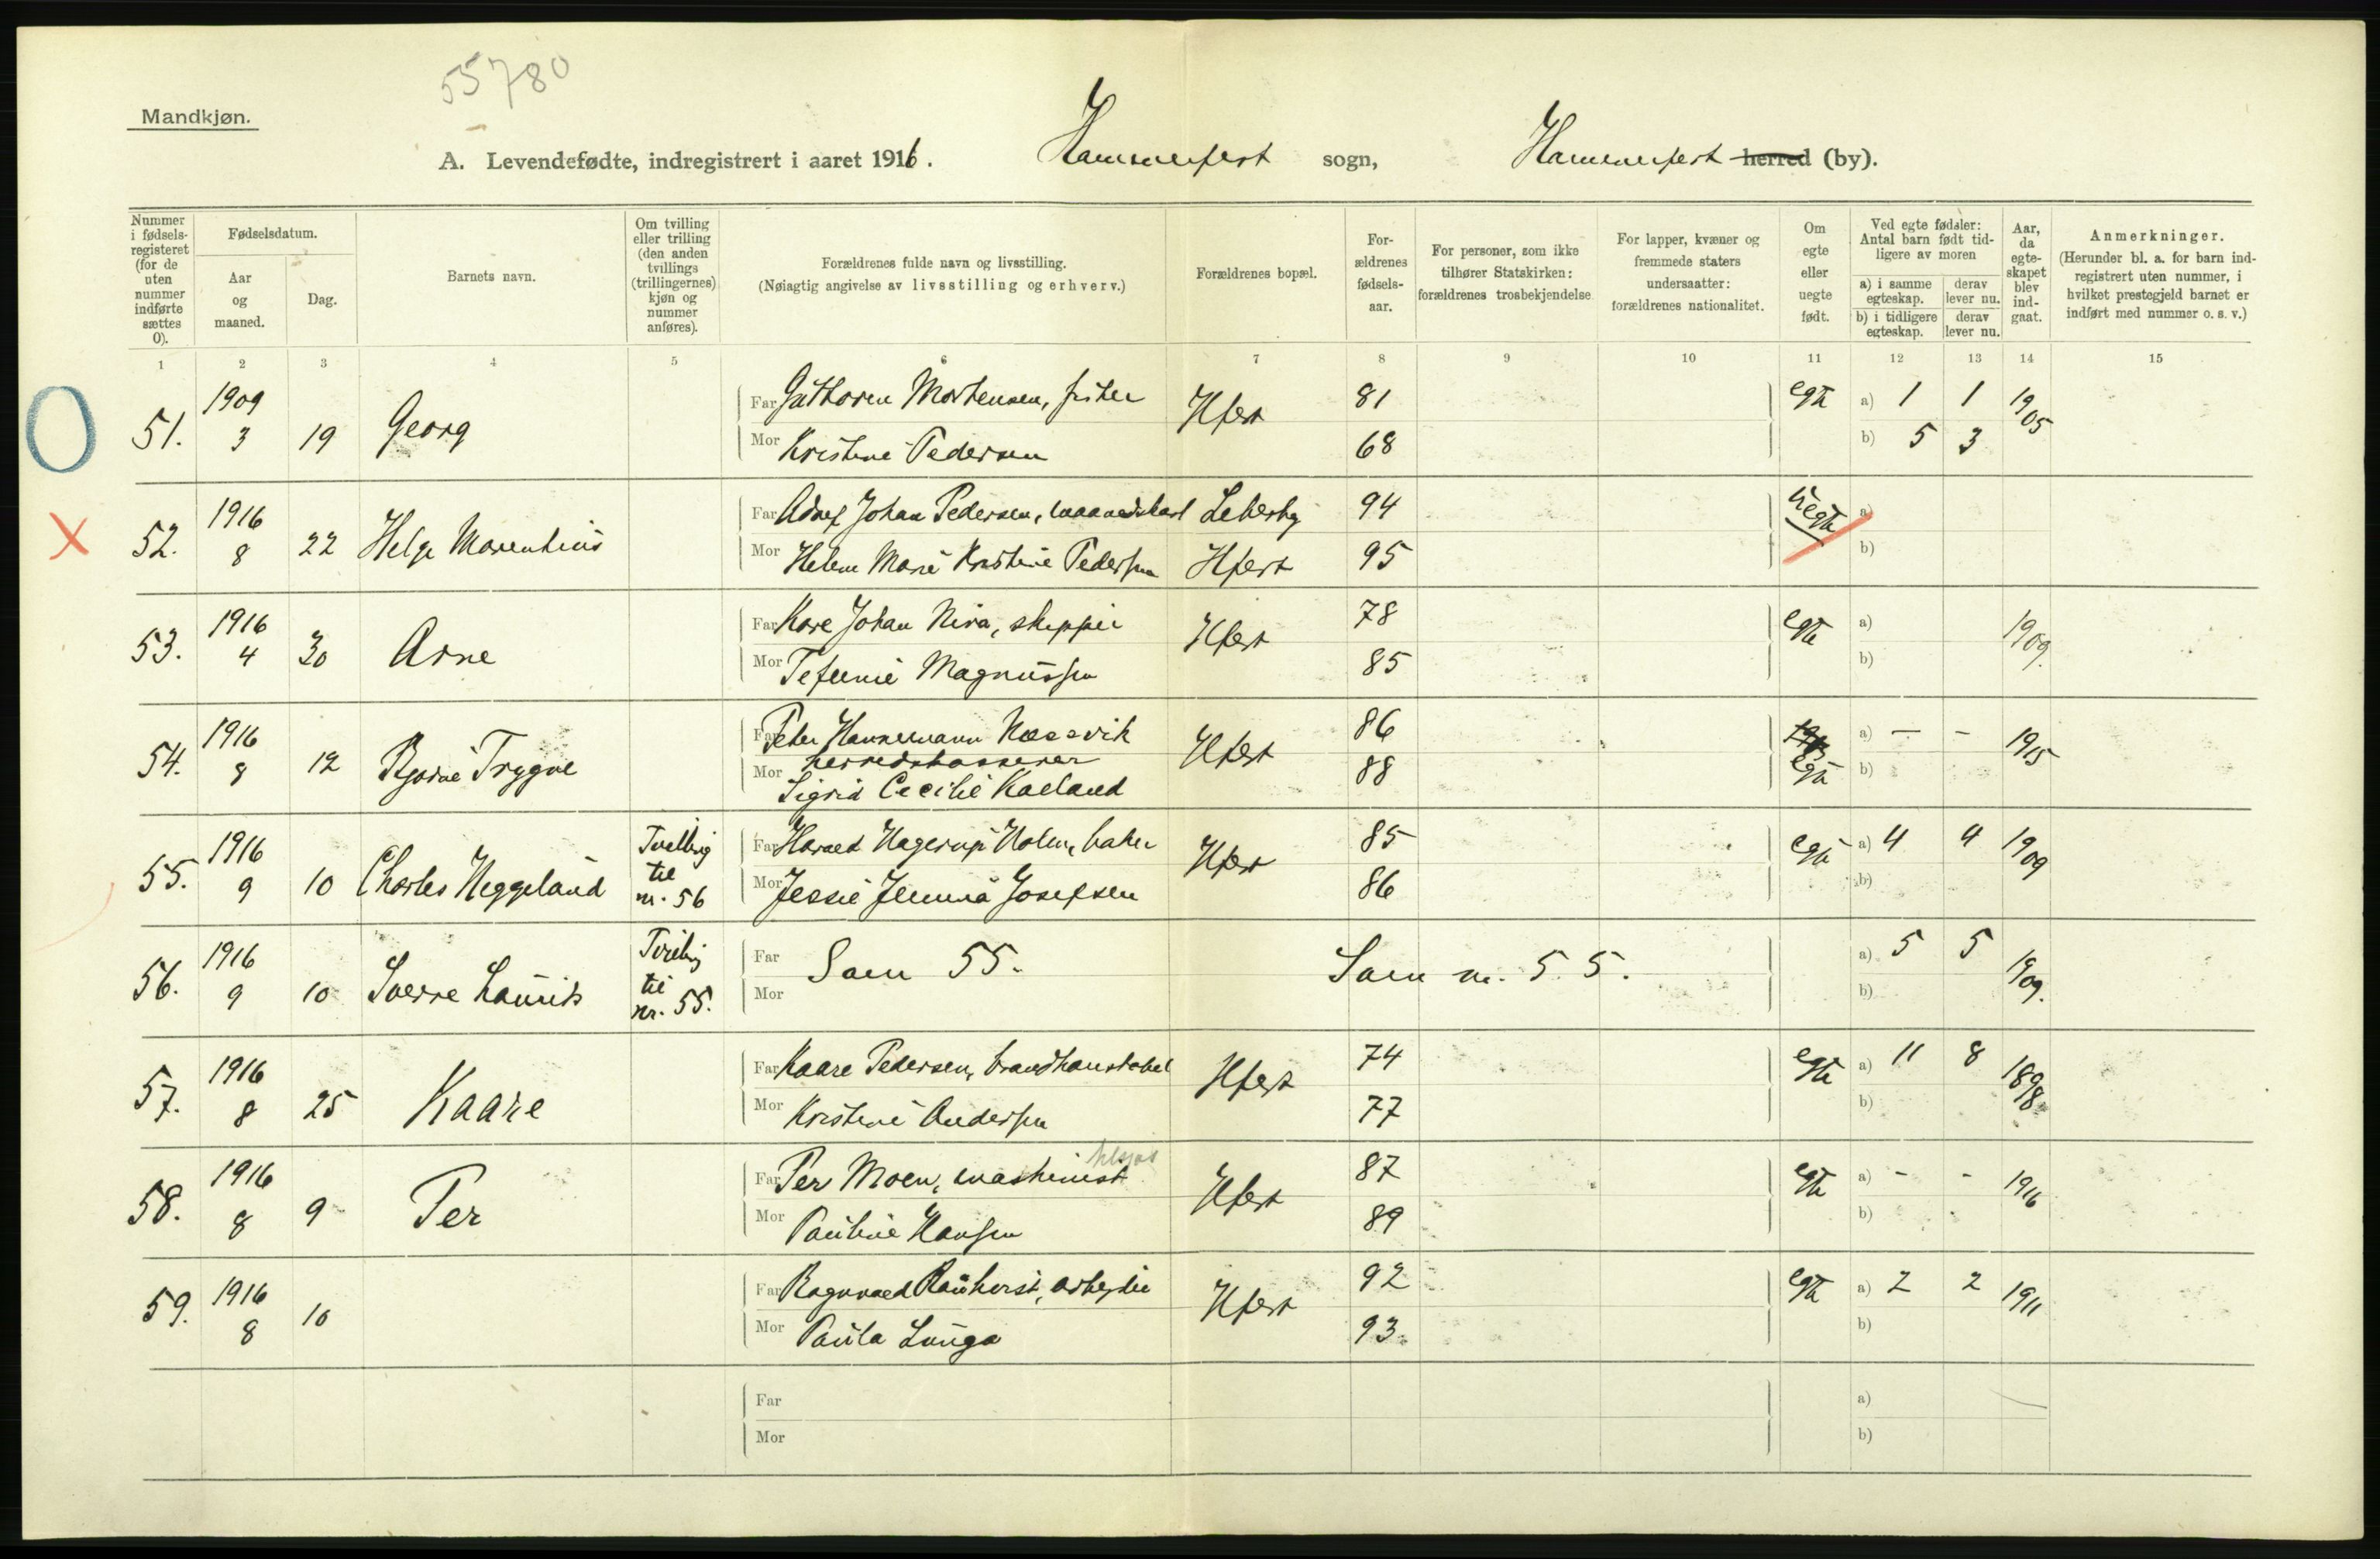 55780
Mandkjøn.
A. Levendefødte, indregistrert i aaret 1916. Hammerfest sogn, Hammerfest herred (by).
Nummer i fødsels-registeret (for de uten nummer indførte sættes 0).
Fødselsdatum.
Aar og maaned.
Dag.
Barnets navn.
Om tvilling eller trilling (den anden tvillings (trillingernes) kjøn og nummer anføres).
Forældrenes fulde navn og livsstilling.
(Nøiagtig angivelse av livsstilling og erhverv.)
Forældrenes bopæl.
For-ældrenes fødsels-aar.
For personer, som ikke tilhører Statskirken: forældrenes trosbekjendelse
For lapper, kvæner og fremmede staters undersaatter: forældrenes nationalitet.
Om egte eller uegte født.
Ved egte fødsler: Antal barn født tid-ligere av moren
a) i samme egteskap.
derav lever nu.
b) i tidligere egteskap.
derav lever nu.
Aar, da egte-skapet blev ind-gaat.
Anmerkninger.
(Herunder bl. a. for barn ind-registrert uten nummer, i hvilket prestegjeld barnet er indført med nummer o. s. v.)
1 2 3 4 5 6 7 8 9 10 11 12 13 14 15
51. 1909 3 19 Georg Far Mortensen, fisker Hfest 81 egte a) 1 1 1905
Mor Kristine Pedersen 68 b) 5 3
52. 1916 8 22 Helge Far Johan Pedersen, Lebesby 94 uegte a)
Mor Helene Marie Kristine Pedersen Hfest 95 b)
53. 1916 4 30 Arne Far Kare Johan Niva, skipper Hfest 78 egte a) 1909.
Mor Magnussen 85 b)
54. 1916 8 12 Bjarne Trygve Far Peter Hannemann Næssvik Hfest 86 egte a) — - 1915
herredskasserer
Mor Sigrid Cecilie Kaeland 88 b)
55. 1916 9 10 Charles Heggeland Tvilling til nr. 56 Far Harald Hagerup Holm, baker Hfest 85 egte a) 4 4 1909
Mor Jessie Josefsen 86 b)
56. 1916 9 10 Sverre Laurits Tvilling til nr. 55. Far Som 55. Som nr. 55. a) 5 5 1909.
Mor b)
57. 1916 8 25 Kaare Far Kaare Pedersen, brandkonstabel Hfest 74 egte a) 11 8 1898
Mor Kristine Andersen 77 b)
58. 1916 8 9 Per Far Per Moen, maskinist Hfest 87 egte a) - - 1916
Mor Pauline Hansen 89 b)
59. 1916 8 10 Far Ragnvald arbeider Hfest 92 egte a) 2 2 1911
Mor Paula Lunga 93 b)
Far a)
Mor b)